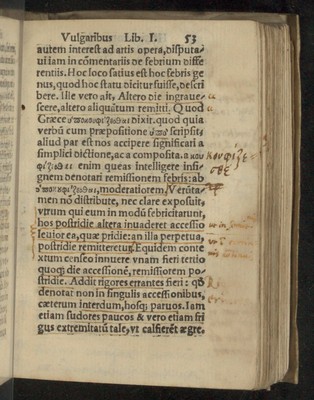 Vulgaribus Lib. I. 53
autem interest ad artis opera, disputa-
ui iam in cõmentariis de febrium diffe
rentiis. Hoc loco satius est hoc febris ge
nus, quod hoc statu dicitur fuisse, descri
bere. Ille vero ait, Altero die ingraue-
scere, altero aliquãtum remitti. Quod
Græce dixit. quod quia
verbũ cum præpositione ὑπὸ scripsit,
aliud par est nos accipere significari a
simplici dictione, ac a composita. a κου
φίζεσθαι enim queas intelligere insi-
gnem denotari remissionem febris: ab
ὑποκουφίζεσθαι, moderatiorem. Verũta-
men nõ distribute, nec clare exposuit,
vtrum qui eum in modũ febricitarunt,
hos postridie altera inuaderet accessio
leuior ea, quæ pridie: an illa perpetua,
postridie remitteretur. Equidem conte
xtum censeo innuere vnam fieri tertio
quoq; die accessionẽ, remissiorem po-
stridie. Addit rigores errantes fieri: qđ
denotat non in singulis accessionibus,
cæterum interdum, hosq; paruos. Iam
etiam sudores paucos & vero etiam fri
gus extremitatũ tale, vt calfieret ægre,